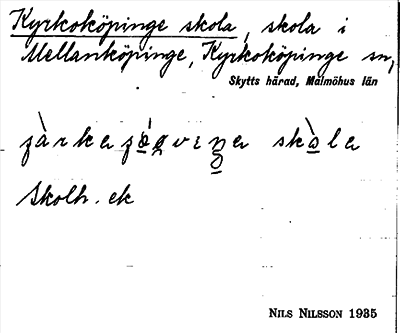 Kyrkoköpinge skola, skola i
Mellanköpinge, Kyrkoköpinge sn,
Skytts härad, Malmöhus län
skola
Skolh. ek
NILS NILSSON 1935